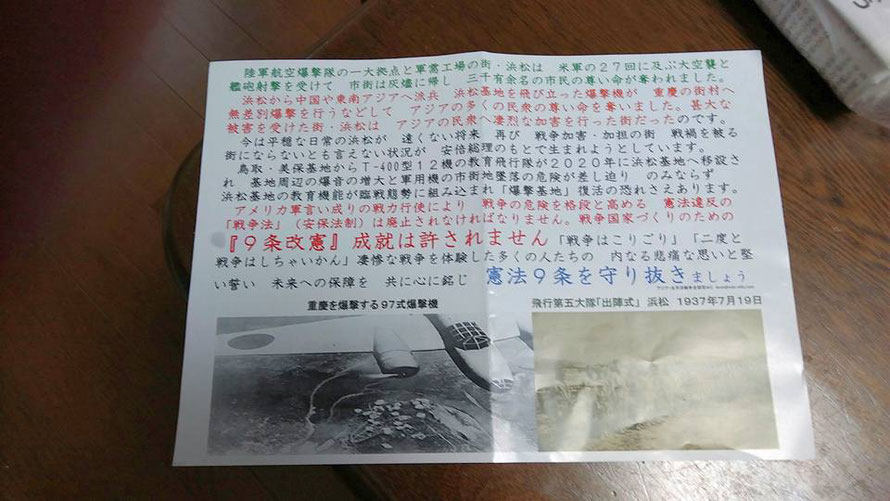 陸軍航空爆撃隊の一大拠点と軍需工場の街・浜松は　米軍の27回に及ぶ大空襲と
艦砲射撃を受けて　市街は灰燼に帰し　三千有余名の市民の尊い命が奪われました。
浜松から中国や東南アジアへ派兵　浜松基地を飛び立った爆撃機が　重慶の街村へ
無差別爆撃を行うなどして　アジアの多くの民衆の尊い命を奪いました。甚大な
被害を受けた街・浜松は　アジアの民衆へ凄烈な加害を行った街だったのです。
今は平穏な日常の浜松が　遠くない将来　再び　戦争加害・加担の街　戦禍を被る
街にならないとも言えない状況が　安倍総理のもとで生まれようとしています。
鳥取・美保基地からT-400型12機の教育飛行隊が2020年に浜松基地へ移設さ
れ　基地周辺の爆音の増大と軍用機の市街地墜落の危険が差し迫り　のみならず
浜松基地の教育機能が臨戦態勢に組み込まれ「爆撃基地」復活の恐れさえあります。
アメリカ軍言い成りの戦力行使により　戦争の危険を格段と高める　憲法違反の
「戦争法」（安保法制）は廃止されなければなりません。戦争国家づくりのための
『9条改憲』成就は許されません「戦争はこりごり」「二度と
戦争はしちゃいかん」凄惨な戦争を体験した多くの人たちの　内なる悲痛な思いと堅
い誓い　未来への保障を　共に心に銘じ　憲法9条を守り抜きましょう
重慶を爆撃する97式爆撃機
飛行第五大隊「出陣式」　浜松　1937年7月19日